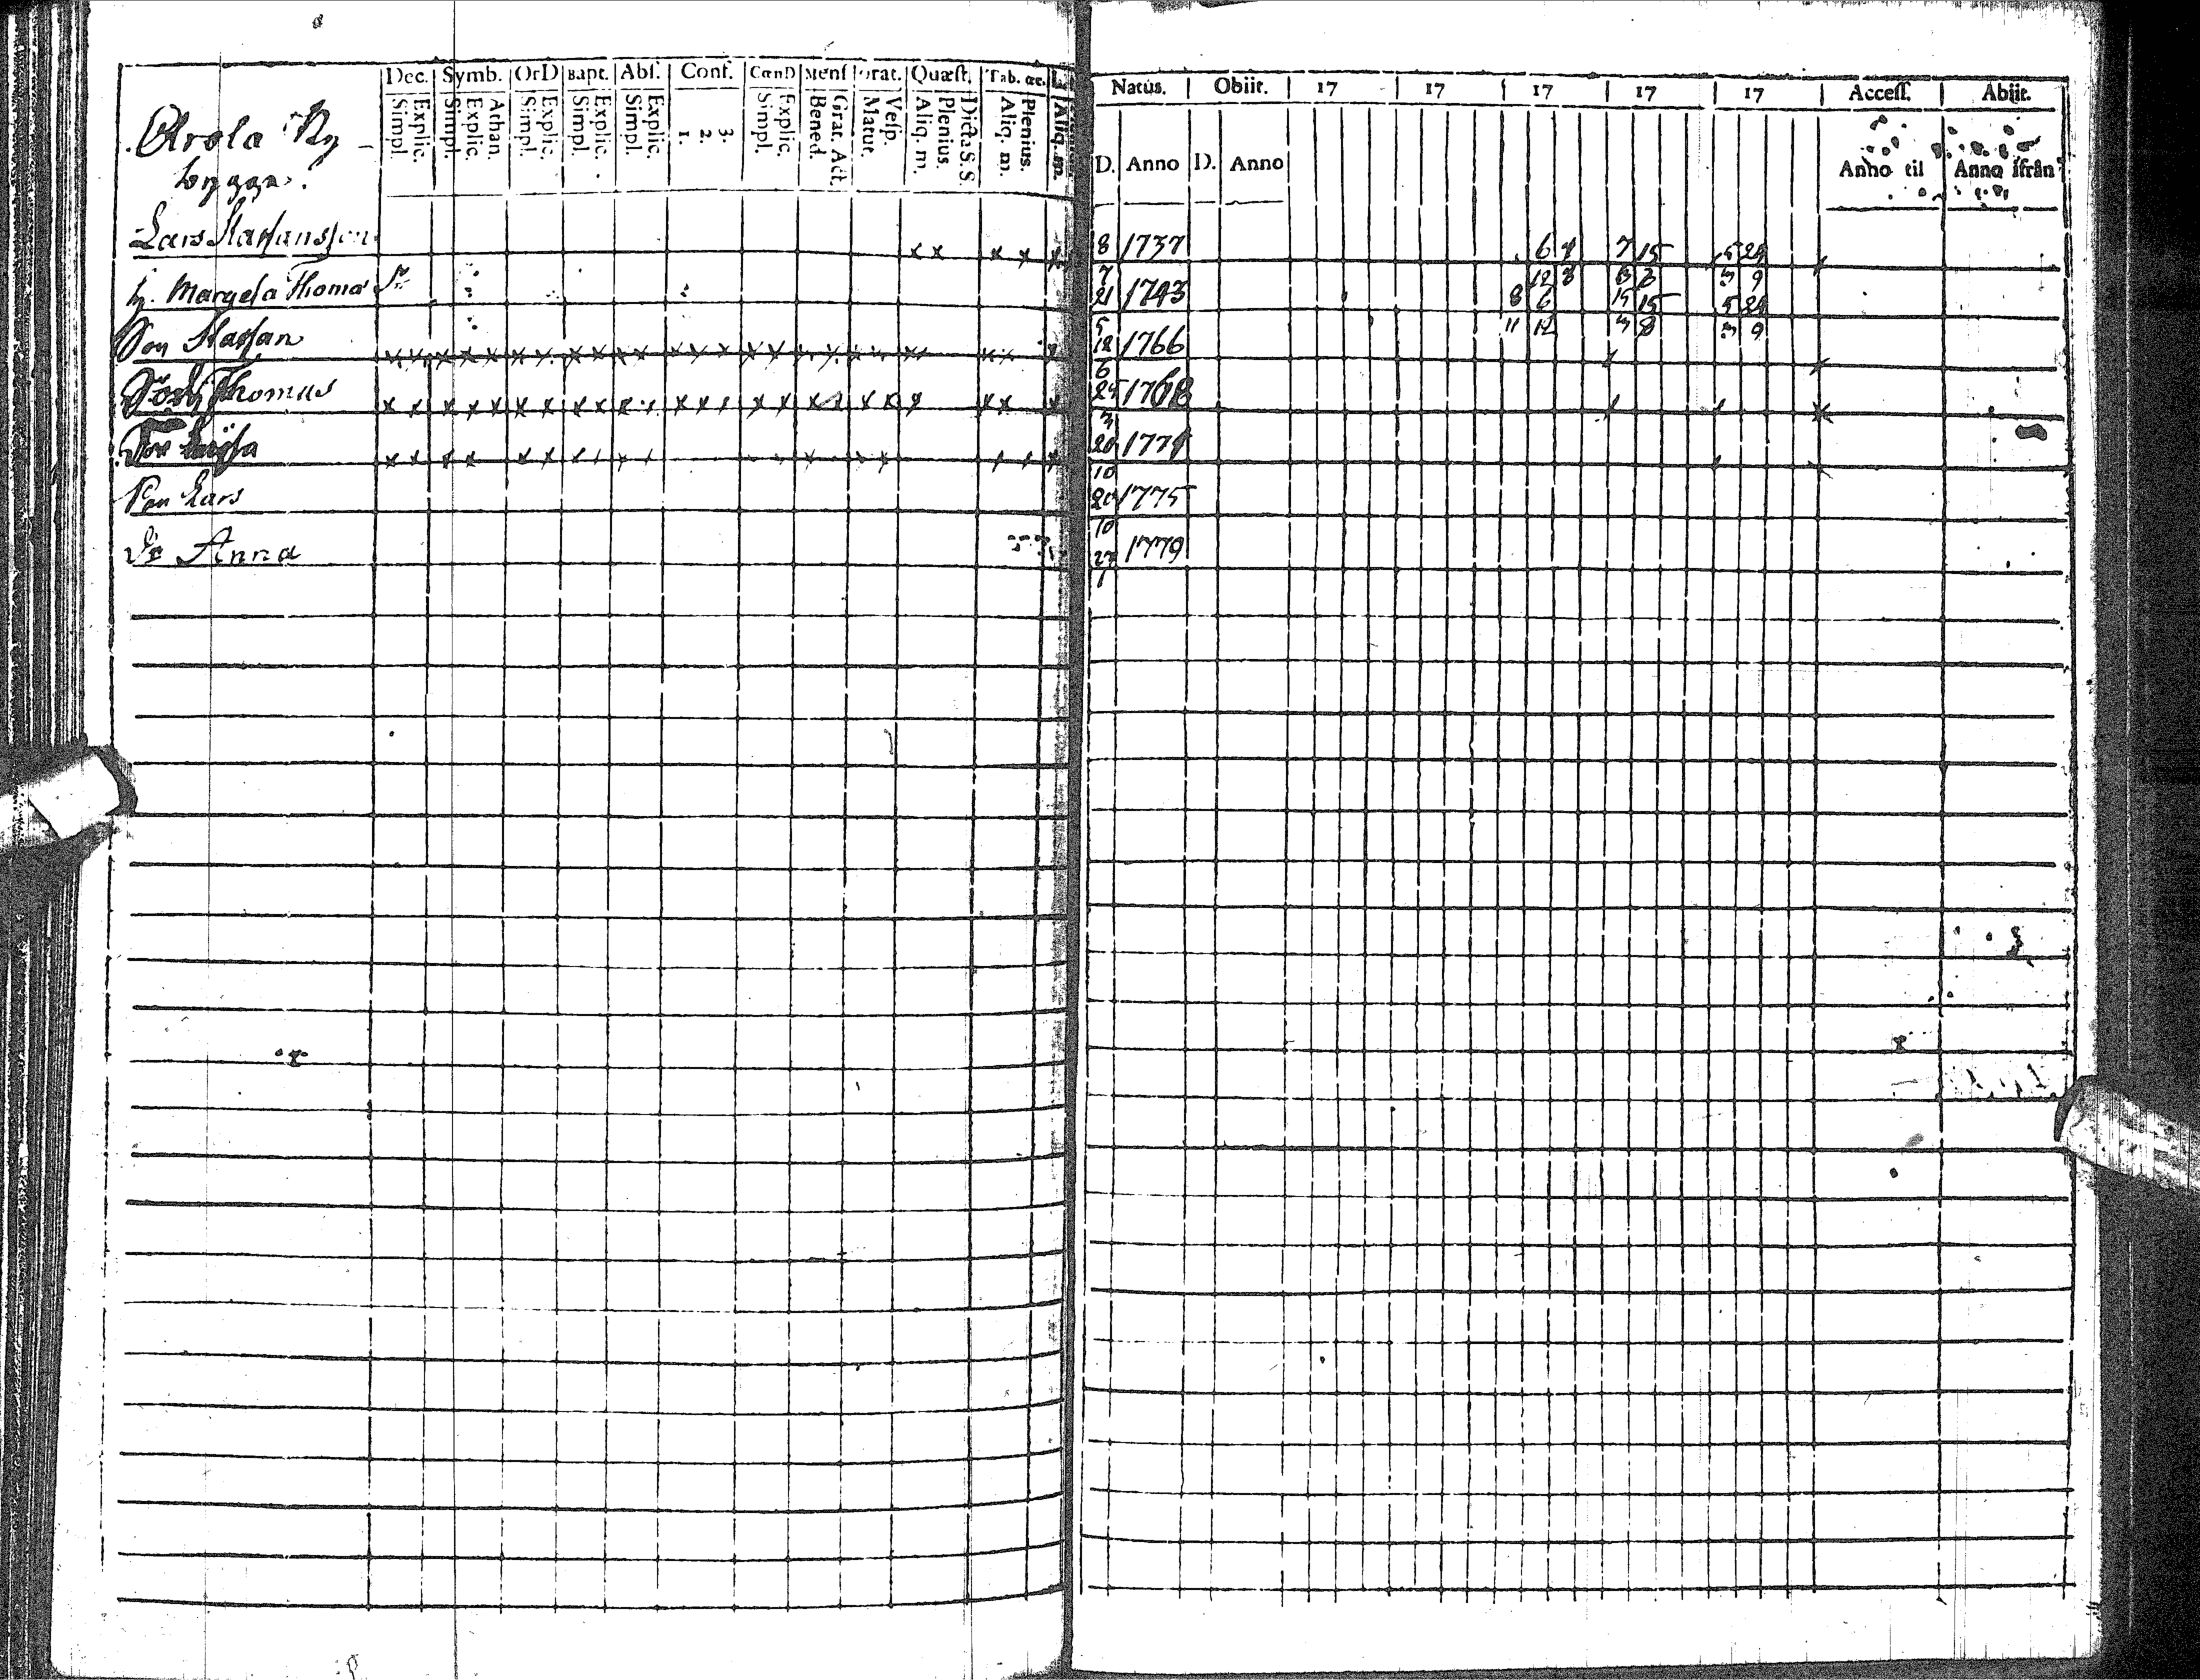 Dec. Symb. OrD Bapt. Abs. Conf. CœnD Mens Orat. Quæst. Tab. œc.
Simpl. Explic. Simpl. Explic. Athan. Simpl. Explic. Simpl. Explic. Simpl. Explic. 1. 2. 3. Simpl. Explic. Bened. Grat. Act. Matut. Vesp. Aliq. m. Plenius. Dicta S.S. Aliq. m. Plenius. Aliq. m.
Natus. Obiit. 17 17 17 17 17 Access. Abiit.
D. Anno D. Anno Anno til Anno ifrån
Arola Ny
bygge.
Lars Staffansson 8/7 1737 6/12 7 15 5/3 24/9
h. Margeta Thomæ Dr 21/5 1743 8/11 6/12 15/3 15/8 5/3 24/9
Son Staffan 12/6 1766
Son Thomas 25/3 1768
20/10 1771
Son Lars 20/10 1775
Dr Anna 27/1 1779